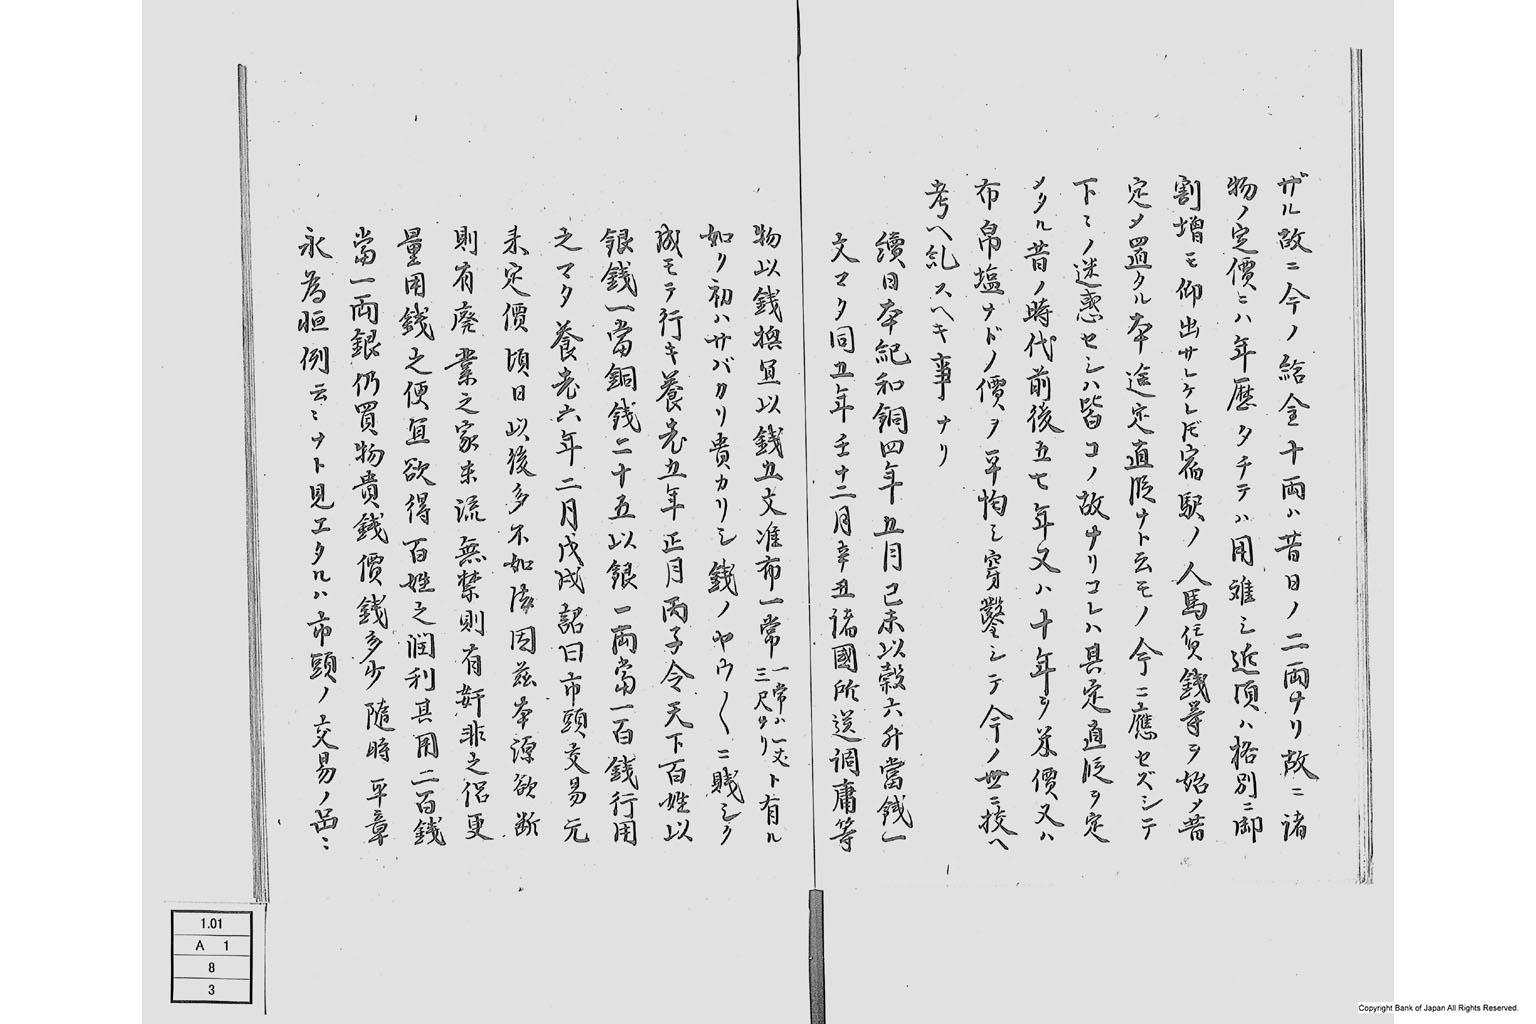 ザル故ニ今ノ給金十両ハ昔日ノ二両ナリ故ニ諸
物ノ定價ニハ年歴タチテハ用難シ近頃ハ格別ニ御
割増モ仰出サレケレド宿駅ノ人馬賃銭等ヲ始メ昔
定メ置タル本途定直段ナト云モノ今ニ應セズシテ
下ミノ迷惑セシハ皆コノ故ナリコレハ其定直段ヲ定
メタル昔ノ時代前後五七年又ハ十年ヲ米價又ハ
布帛塩ナドノ價ヲ平均シ穿鑿シテ今ノ世ニ按ヘ
考ヘ糺スヘキ事ナリ
續日本紀和銅四年五月己未以穀六升當銭一
文マタ同五年壬十二月辛丑諸國所送調庸等
物以銭換宜以銭五文准布一常
一常ハ一丈
三尺ナリ
ト有ル
如ク初ハサバカリ貴カリシ銭ノヤウ〱ニ賎シク
成モテ行キ養老五年正月丙子令天下百姓以
銀銭一當銅銭二十五以銀一両當一百銭行用
之マタ養老六年二月戊戌詔曰市頭交易元
来定價頃日以後多不如法因茲本源欲断
則有廃業之家末流無禁則有奸非之侶更
量用銭之便宜欲得百姓之潤利其用二百銭
當一両銀仍買物貴銭價銭多少随時平章
永為恒例云ミナト見エタルハ市頭ノ交易ノ品ミ
1.01
A 1
8
3
Copyright Bank of Japan All Rights Reserved.